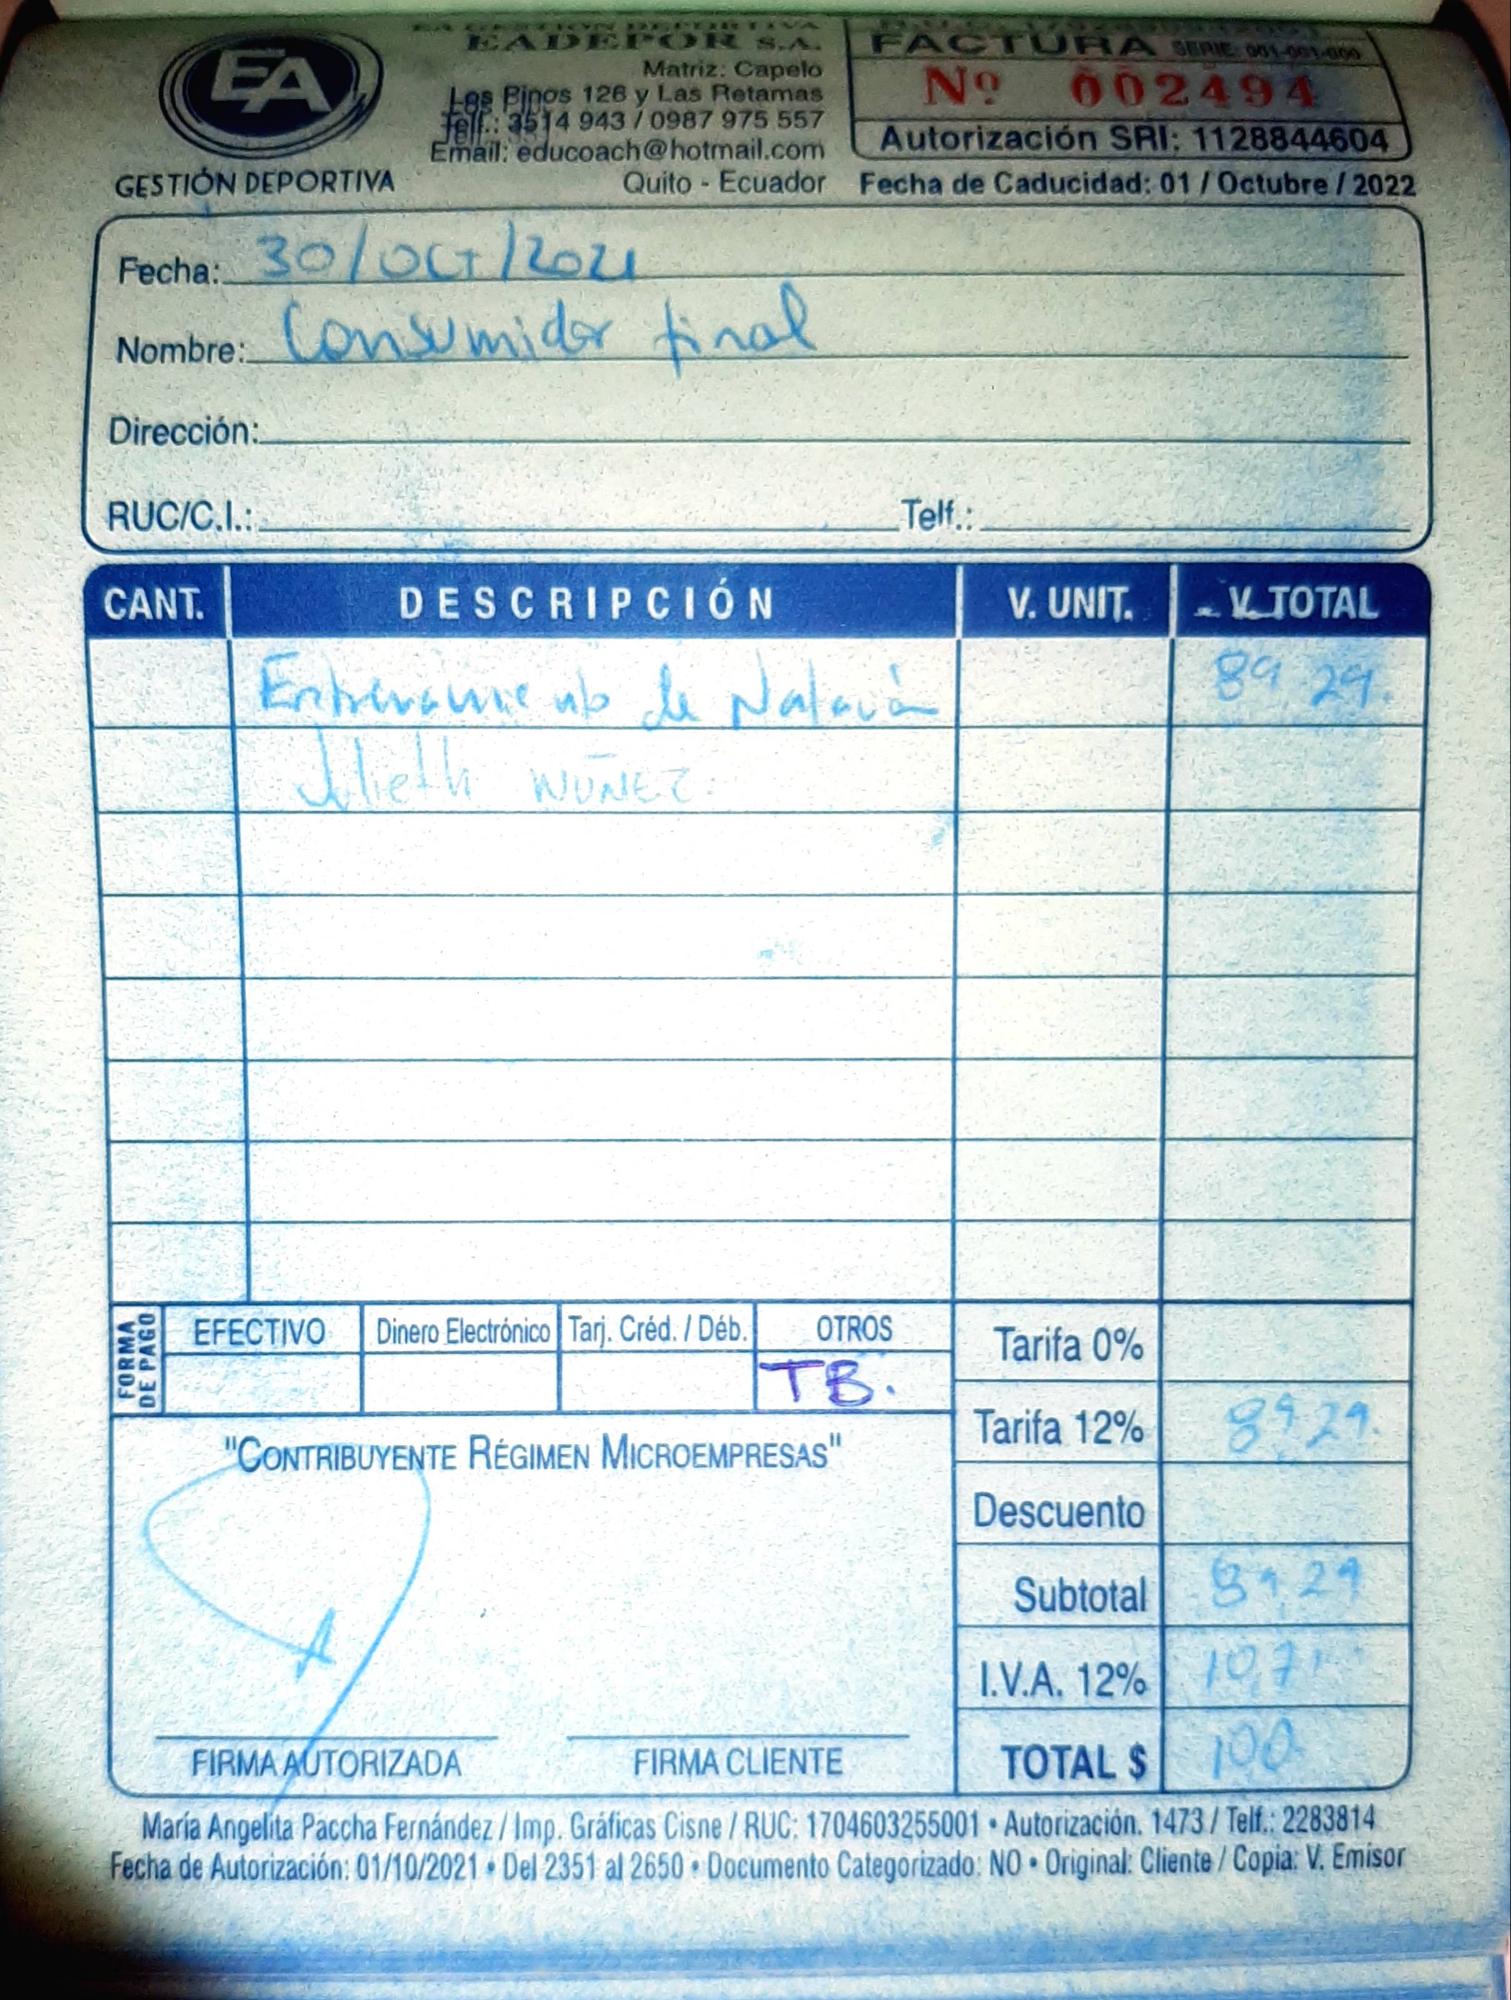 EA GESTIÓN DEPORTIVA
EADEPOR S.A.
Matriz: Capelo
Los Pinos 126 y Las Retamas
Telf.: 3514 943 / 0987 975 557
Email: educoach@hotmail.com
Quito - Ecuador
EA
GESTIÓN DEPORTIVA
FACTURA SERIE: 001-001-000
Nº 002494
Autorización SRI: 1128844604
Fecha de Caducidad: 01 / Octubre / 2022
Fecha: 30/OCT/2021
Nombre: Consumidor final
Dirección:
RUC/C.I.: Telf.:
CANT. DESCRIPCIÓN V. UNIT. V. TOTAL
Entrenamiento de Natación 89 29.
Julieth NÚÑEZ.
FORMA DE PAGO
EFECTIVO Dinero Electrónico Tarj. Créd. / Déb. OTROS
TB.
Tarifa 0%
Tarifa 12% 89.29.
Descuento
Subtotal 89.29
I.V.A. 12% 10,71
TOTAL $ 100
"CONTRIBUYENTE RÉGIMEN MICROEMPRESAS"
FIRMA AUTORIZADA FIRMA CLIENTE
María Angelita Paccha Fernández / Imp. Gráficas Cisne / RUC: 1704603255001 • Autorización. 1473 / Telf.: 2283814
Fecha de Autorización: 01/10/2021 • Del 2351 al 2650 • Documento Categorizado: NO • Original: Cliente / Copia: V. Emisor